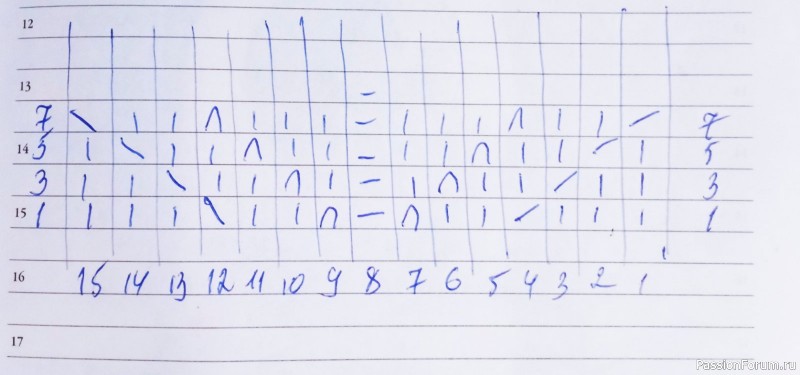 12
13 –
7 \ | | ∩ | | | – | | | ∩ | | / 7
14
5 | \ | | ∩ | | – | | ∩ | | / | 5
3 | | \ | | ∩ | – | ∩ | | / | | 3
15
1 | | | \ | | ∩ – ∩ | | / | | | 1
16 15 14 13 12 11 10 9 8 7 6 5 4 3 2 1
17
PassionForum.ru